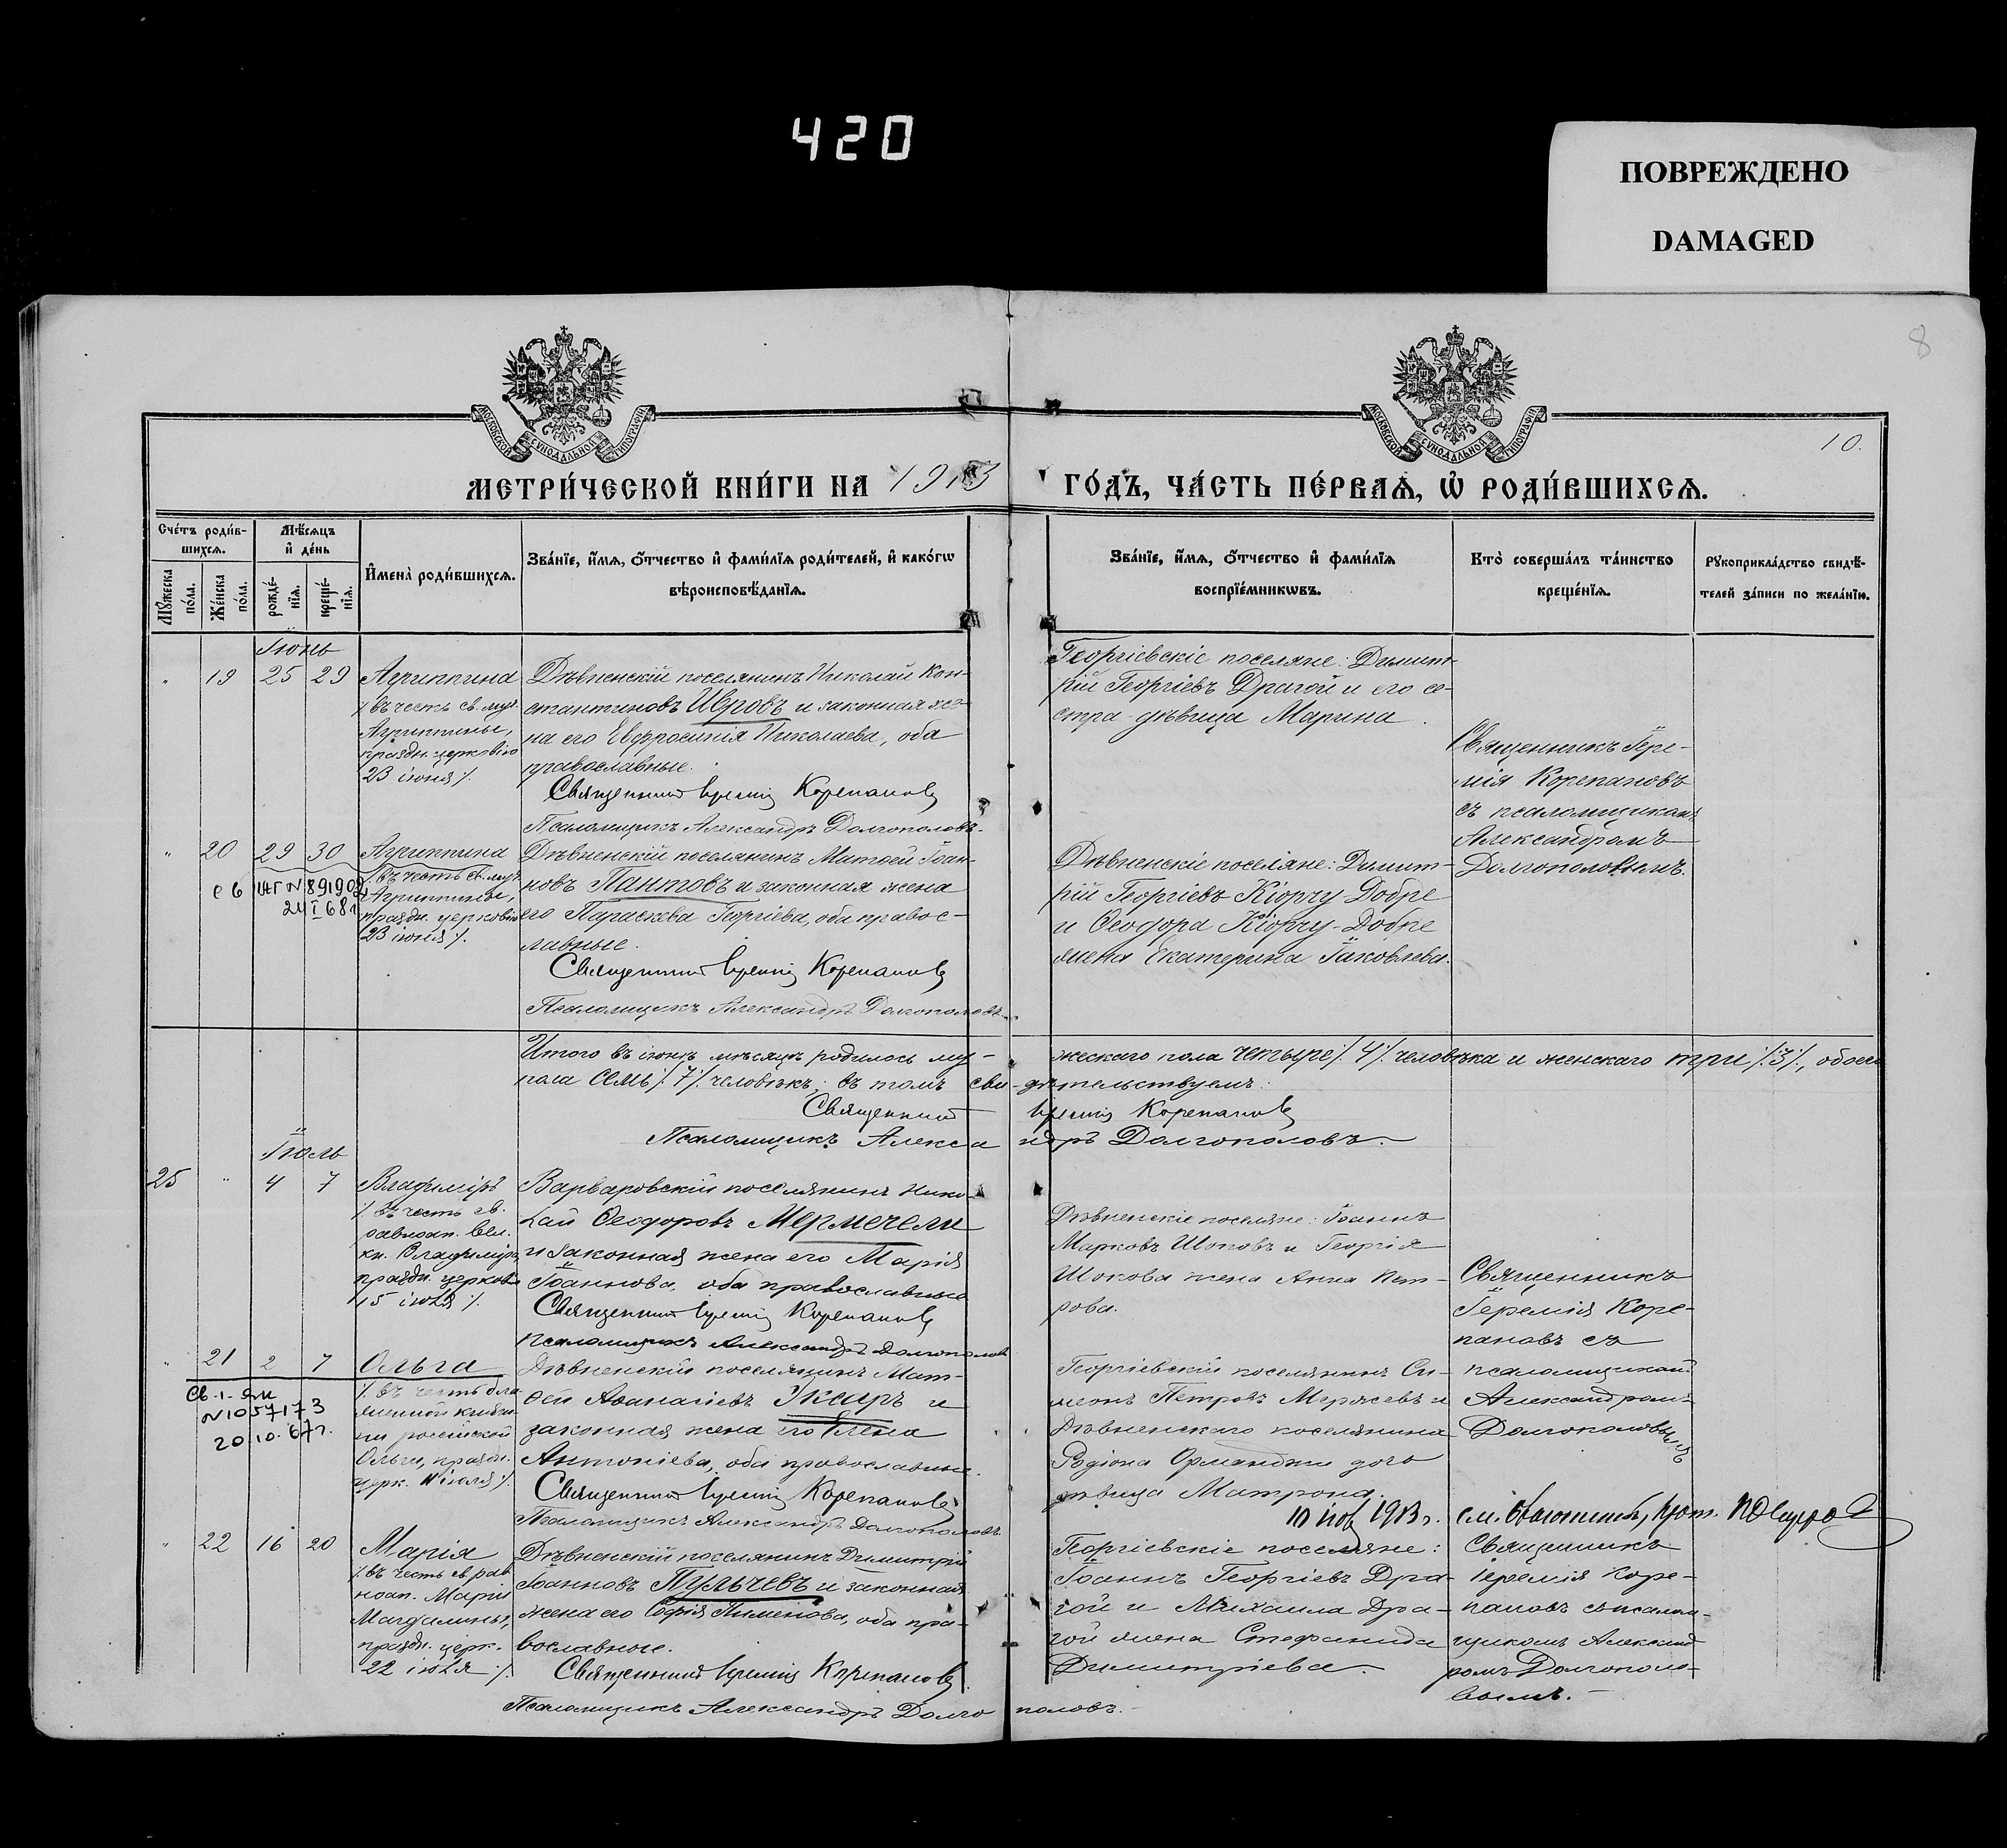 420
ПОВРЕЖДЕНО
DAMAGED
8
МОСКОВСКОЙ СѴНОДАЛЬНОЙ ТИПОГРАФІИ
МОСКОВСКОЙ СѴНОДАЛЬНОЙ ТИПОГРАФІИ
10.
МЕТРИ́ЧЕСКОЙ КНИ́ГИ НА 1913 ГО́ДЪ, ЧА́СТЬ ПЕ́РВАѦ, Ѡ҆ РОДИ́ВШИХСѦ.
Сче́тъ роди́в-
шихсѧ.
Мꙋ́жеска по́ла.
Же́нска по́ла.
Мѣ́сѧцъ
и҆ де́нь
рожде́-
нїѧ.
креще́-
нїѧ.
И҆мена̀ роди́вшихсѧ.
Зва́нїе, и҆́мѧ, ѻ҆́тчество и҆ фами́лїѧ роди́телей, и҆ како́гѡ
вѣроисповѣ́данїѧ.
Зва́нїе, и҆́мѧ, ѻ҆́тчество и҆ фами́лїѧ
воспрїе́мникѡвъ.
Кто̀ соверша́лъ та́инство
креще́нїѧ.
Рꙋкоприкла́дство свидѣ́-
телей за́писи по жела́нїю.
Іюнь
" 19 25 29 Агриппина
/. въ честь св. муч.
Агриппины,
праздн. церковію
23 іюня /.
Дѣвненскій поселянинъ Николай Кон-
стантиновъ Ивровъ и законная же-
на его Евфросинія Николаева, оба
православные.
Священникъ Іеремія Корепановъ
Псаломщикъ Александръ Долгополовъ.
Георгіевскіе поселяне: Димит-
рій Георгіевъ Драгой и его се-
стра дѣвица Марина.
Священникъ Іере-
мія Корепановъ
съ псаломщикомъ
Александромъ
Долгополовымъ.
" 20 29 30 Агриппина
/. въ честь св. муч.
Агриппины,
праздн. церковію
23 іюня /.
№891902
24 I 68
Дѣвненскій поселянинъ Матѳей Іоан-
новъ Пантовъ и законная жена
его Параскева Георгіева, оба правос-
лавные.
Священникъ Іеремія Корепановъ
Псаломщикъ Александръ Долгополовъ.
Дѣвненскіе поселяне: Димит-
рій Георгіевъ Кіорчу Добре
и Ѳеодора Кіорчу-Добре
жена Екатерина Іаковлева.
Итого въ іюнѣ мѣсяцѣ родилось му-
жескаго пола четыре /.4/. человѣка и женскаго три /.3/., обоего
пола семь /.7/. человѣкъ; въ томъ сви-
дѣтельствуемъ:
Священникъ Іеремія Корепановъ
Псаломщикъ Александръ Долгополовъ.
Іюль
25 " 4 7 Владиміръ
/. въ честь св.
равноап. вел.
кн. Владиміра,
праздн. церковію
15 іюля /.
Варваровскій поселянинъ Нико-
лай Ѳеодоровъ Мермечели
и законная жена его Марія
Іоаннова, оба православные
Священникъ Іеремія Корепановъ
Псаломщикъ Александръ Долгополовъ
Дѣвненскіе поселяне: Іоаннъ
Марковъ Шоповъ и Георгія
Шопова жена Анна Пет-
рова.
Священникъ
Іеремія Коре-
пановъ съ
псаломщикомъ
Александромъ
Долгополовымъ
" 21 2 7 Ольга
/. въ честь бла
женной княги-
ни россійской
Ольги, праздн.
церк. 11 іюля /.
№1057173
20.10.67г.
Дѣвненскій поселянинъ Мат-
ѳей Аѳанасіевъ Жекиръ и
законная жена его Елена
Антоніева, оба православные.
Священникъ Іеремія Корепановъ
Псаломщикъ Александръ Долгополовъ.
Георгіевскій поселянинъ Си-
меонъ Петровъ Меряжевъ и
Дѣвненскаго поселянина
Родіона Орманджи дочь
дѣвица Матрона.
10 1913 г.
" 22 16 20 Марія
/. въ честь св. рав
ноап. Маріи
Магдалины,
праздн. церк.
22 іюля /.
Дѣвненскій поселянинъ Димитрій
Іоанновъ Пульчевъ и законная
жена его Софія Пименова, оба пра-
вославные.
Священникъ Іеремія Корепановъ.
Псаломщикъ Александръ Долгополовъ.
Георгіевскіе поселяне:
Іоаннъ Георгіевъ Дра-
гой и Михаила Дра-
гой жена Стефанида
Димитріева.
Священникъ
Іеремія Коре-
пановъ съ псалом-
щикомъ Александ
ромъ Долгополо-
вымъ.